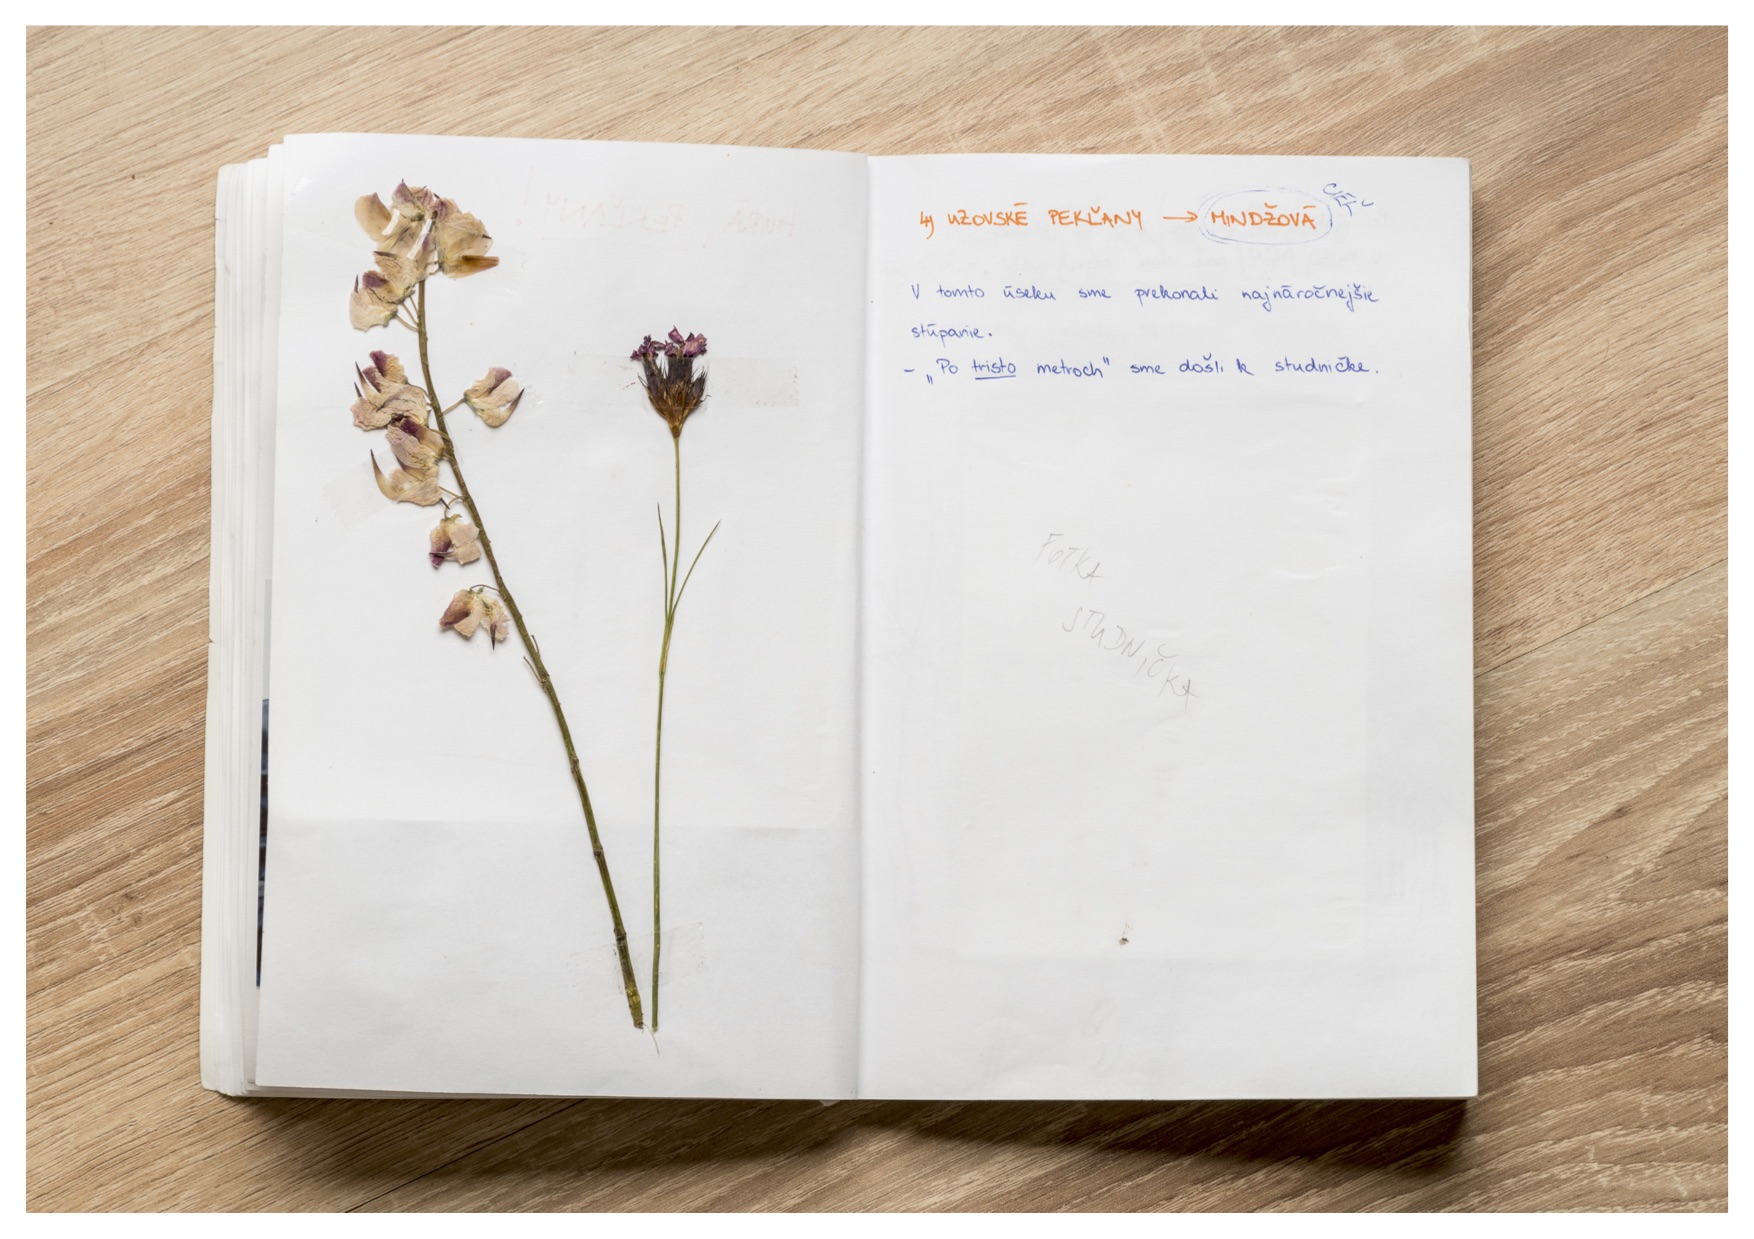 4) UZOVSKÉ PEKĽANY → MINDŽOVÁ
V tomto úseku sme prekonali najnáročnejšie
stúpanie.
- „Po tristo metroch" sme došli k studničke.
FOTKA
STUDNIČKA